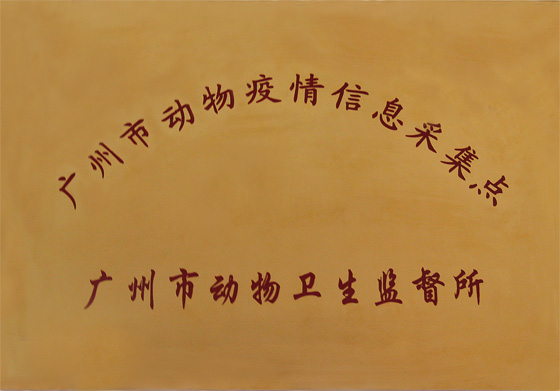 广州市动物疫情信息采集点
广州市动物卫生监督所